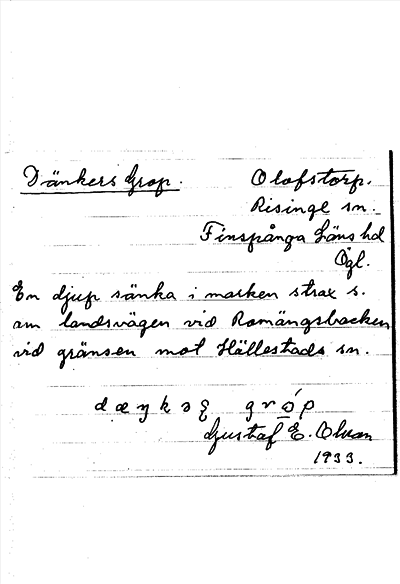 Dänkers Grop. Olofstorp.
Risinge sn.
Finspånga Läns hd
Ögl.
En djup sänka i marken strax s.
om landsvägen vid Romängsbacken
vid gränsen mot Hällestads sn.
gróp
Gustaf E. Olvan
1933.